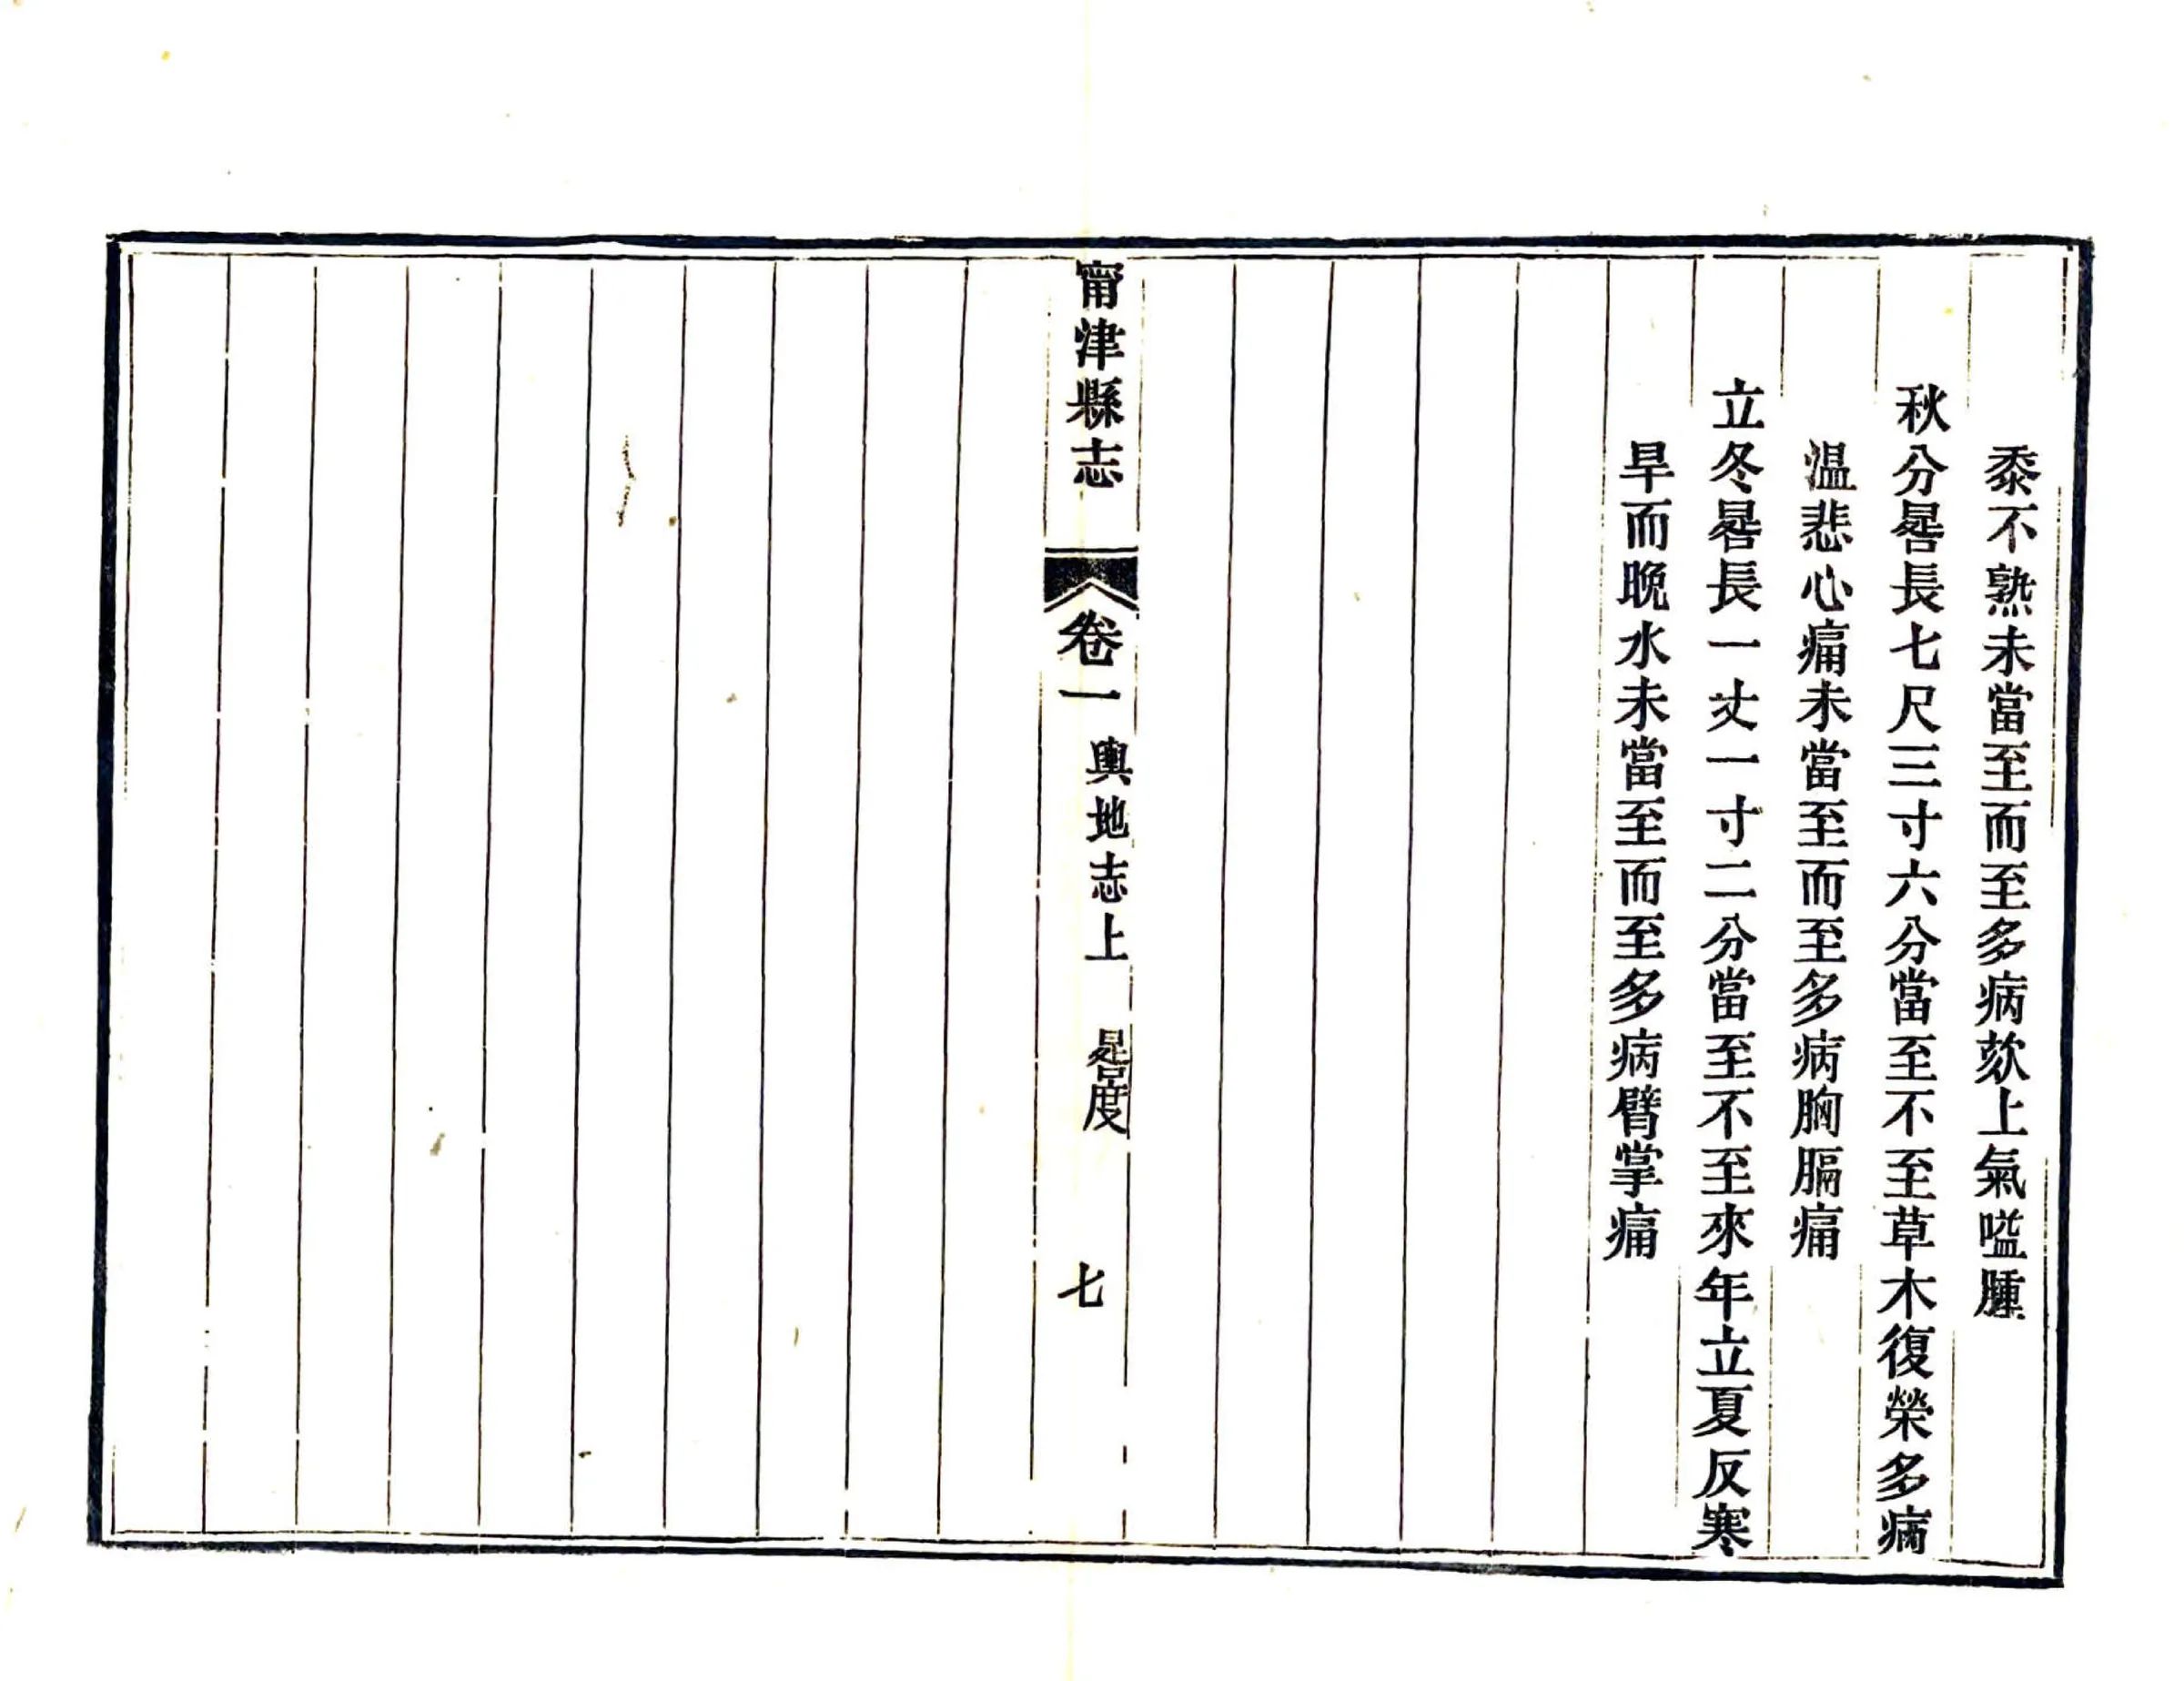 黍不熟未當至而至多病欬上氣嗌腫
秋分晷長七尺三寸六分當至不至草木復榮多病
温悲心痛未當至而至多病胸膈痛
立冬晷長一丈一寸二分當至不至來年立夏反寒
旱而晚水未當至而至多病臂掌痛
甯津縣志
卷一
輿地志上
晷度
七